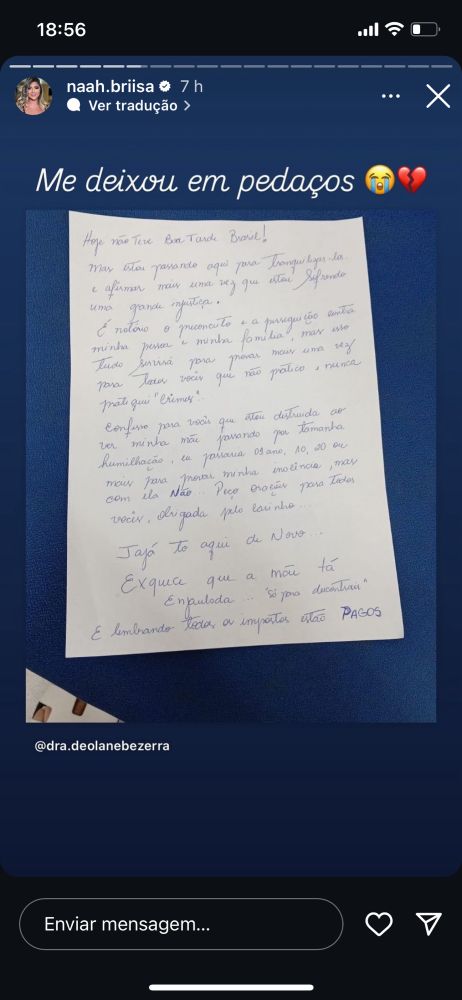 18:56
naah.briisa 7 h
Ver tradução >
Me deixou em pedaços 😭💔
Hoje não Tive Boa Tarde Brasil!
Mas estou passando aqui para tranquilizar-los
e afirmar mais uma vez que estou Sofrendo
uma grande injustiça.
É notório o preconceito e a perseguição contra
minha pessoa e minha família, mas isso
tudo servirá para provar mais uma vez
para todos vocês que não pratico e nunca
pratiquei "Crimes".
Confesso para vocês que estou destruída ao
ver minha mãe passando por tamanha
humilhação, eu passaria 01 ano, 10, 20 ou
mais para provar minha inocência, mas
com ela Não... Peço orações para todos
vocês, obrigada pelo carinho...
Jajá to aqui de Novo...
Exquece que a mãe tá
Enjaulada... "só para descontrair"
E lembrando todos os impostos estão PAGOS
@dra.deolanebezerra
Enviar mensagem...